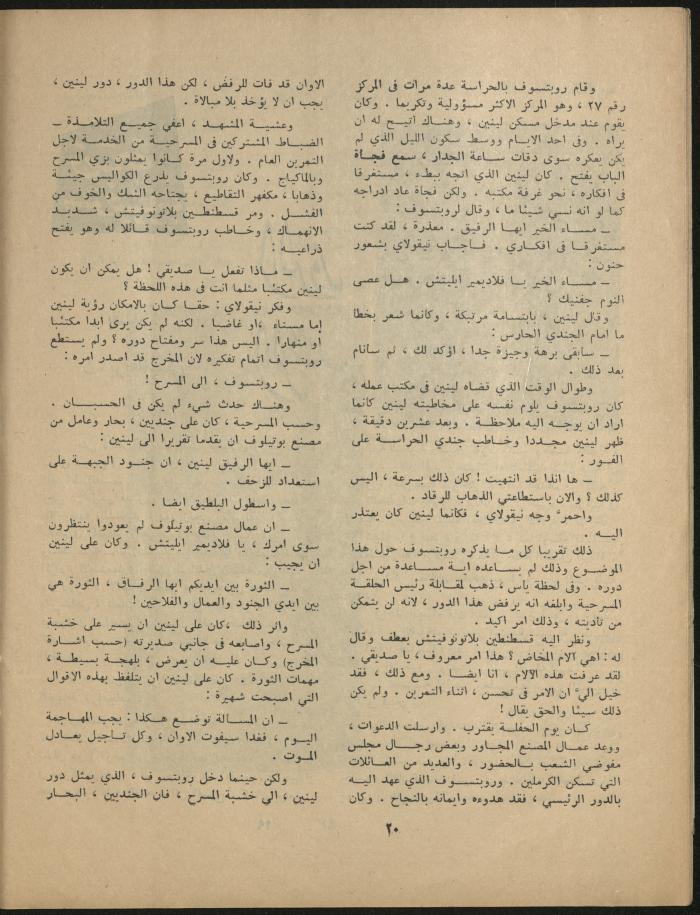 وقام روبتسوف بالحراسة عدة مرات فى المركز
رقم ٢٧ ، وهو المركز الاكثر مسؤولية وتكريما . وكان
يقوم عند مدخل مسكن لينين ، وهناك اتيح له ان
يراه . وفى احد الايام ووسط سكون الليل الذي لم
يكن يعكره سوى دقات ساعة الجدار ، سمع فجأة
الباب يفتح . كان لينين الذي اتجه ببطء ، مستغرقا
فى افكاره ، نحو غرفة مكتبه . ولكن فجأة عاد ادراجه
كما لو انه نسي شيئا ما ، وقال لروبتسوف :
ــ مساء الخير ايها الرفيق . معذرة ، لقد كنت
مستغرقا فى افكاري . فاجاب نيقولاي بشعور
حنون :
ــ مساء الخير يا فلاديمير ايليتش . هل عصى
النوم جفنيك ؟
وقال لينين ، بابتسامة مرتبكة ، وكانما شعر بخطا
ما امام الجندي الحارس :
ــ سابقى برهة وجيزة جدا ، اؤكد لك ، ثم سأنام
بعد ذلك .
وطوال الوقت الذي قضاه لينين فى مكتب عمله ،
كان روبتسوف يلوم نفسه على مخاطبته لينين كانما
اراد ان يوجه اليه ملاحظة . وبعد عشرين دقيقة ،
ظهر لينين مجددا وخاطب جندي الحراسة على
الفور :
ــ ها انذا قد انتهيت ! كان ذلك بسرعة ، اليس
كذلك ؟ والان باستطاعتي الذهاب للرقاد .
واحمرّ وجه نيقولاي ، فكانما لينين كان يعتذر
اليه .
ذلك تقريبا كل ما يذكره روبتسوف حول هذا
الموضوع وذلك لم يساعده اية مساعدة من اجل
دوره . وفى لحظة يأس ، ذهب لمقابلة رئيس الحلقة
المسرحية وابلغه انه يرفض هذا الدور ، لانه لن يتمكن
من تأديته ، وذلك امر اكيد .
ونظر اليه قسطنطين بلاتونوفيتش بعطف وقال
له : اهي آلام المخاض ؟ هذا امر معروف ، يا صديقي .
لقد عرفت هذه الآلام ، انا ايضا . ومع ذلك ، فقد
خيل اليّ ان الامر فى تحسن ، اثناء التمرين . ولم يكن
ذلك سيئا والحق يقال !
كان يوم الحفلة يقترب . وارسلت الدعوات ،
ووعد عمال المصنع المجاور وبعض رجال مجلس
مفوضي الشعب بالحضور ، والعديد من العائلات
التي تسكن الكرملين . وروبتسوف الذي عهد اليه
بالدور الرئيسي ، فقد هدوءه وايمانه بالنجاح . وكان
الاوان قد فات للرفض ، لكن هذا الدور ، دور لينين ،
يجب ان لا يؤخذ بلا مبالاة .
وعشية المشهد ، اعفي جميع التلامذة ــ
الضباط المشتركين فى المسرحية من الخدمة لاجل
التمرين العام . ولاول مرة كانوا يمثلون بزي المسرح
وبالماكياج . وكان روبتسوف يذرع الكواليس جيئة
وذهابا ، مكفهر التقاطيع ، يجتاحه الشك والخوف من
الفشل . ومر قسطنطين بلاتونوفيتش ، شديد
الانهماك ، وخاطب روبتسوف قائلا له وهو يفتح
ذراعيه :
ــ ماذا تفعل يا صديقي ! هل يمكن ان يكون
لينين مكتئبا مثلما انت فى هذه اللحظة ؟
وفكر نيقولاي : حقا كان بالامكان رؤية لينين
إما مستاء ،او غاضبا . لكنه لم يكن يرى ابدا مكتئبا
او منهارا . اليس هذا سر ومفتاح دوره ؟ ولم يستطع
روبتسوف اتمام تفكيره لان المخرج قد اصدر امره :
ــ روبتسوف ، الى المسرح !
وهناك حدث شيء لم يكن فى الحسبان .
وحسب المسرحية ، كان على جنديين ، بحار وعامل من
مصنع بوتيلوف ان يقدما تقريرا الى لينين :
ــ ايها الرفيق لينين ، ان جنود الجبهة على
استعداد للزحف .
ــ واسطول البلطيق ايضا .
ــ ان عمال مصنع بوتيلوف لم يعودوا ينتظرون
سوى امرك ، يا فلاديمير ايليتش . وكان على لينين
ان يجيب :
ــ الثورة بين ايديكم ايها الرفاق ، الثورة هي
بين ايدي الجنود والعمال والفلاحين !
واثر ذلك ،كان على لينين ان يسير على خشبة
المسرح ، واصابعه فى جانبي صديرته (حسب اشارة
المخرج) وكان عليه ان يعرض ، بلهجة بسيطة ،
مهمات الثورة . كان على لينين ان يتلفظ بهذه الاقوال
التي اصبحت شهيرة :
ــ ان المسالة توضع هكذا : يجب المهاجمة
اليوم ، فغدا سيفوت الاوان ، وكل تاجيل يعادل
الموت .
ولكن حينما دخل روبتسوف ، الذي يمثل دور
لينين ، الى خشبة المسرح ، فان الجنديين ، البحار
٢٠